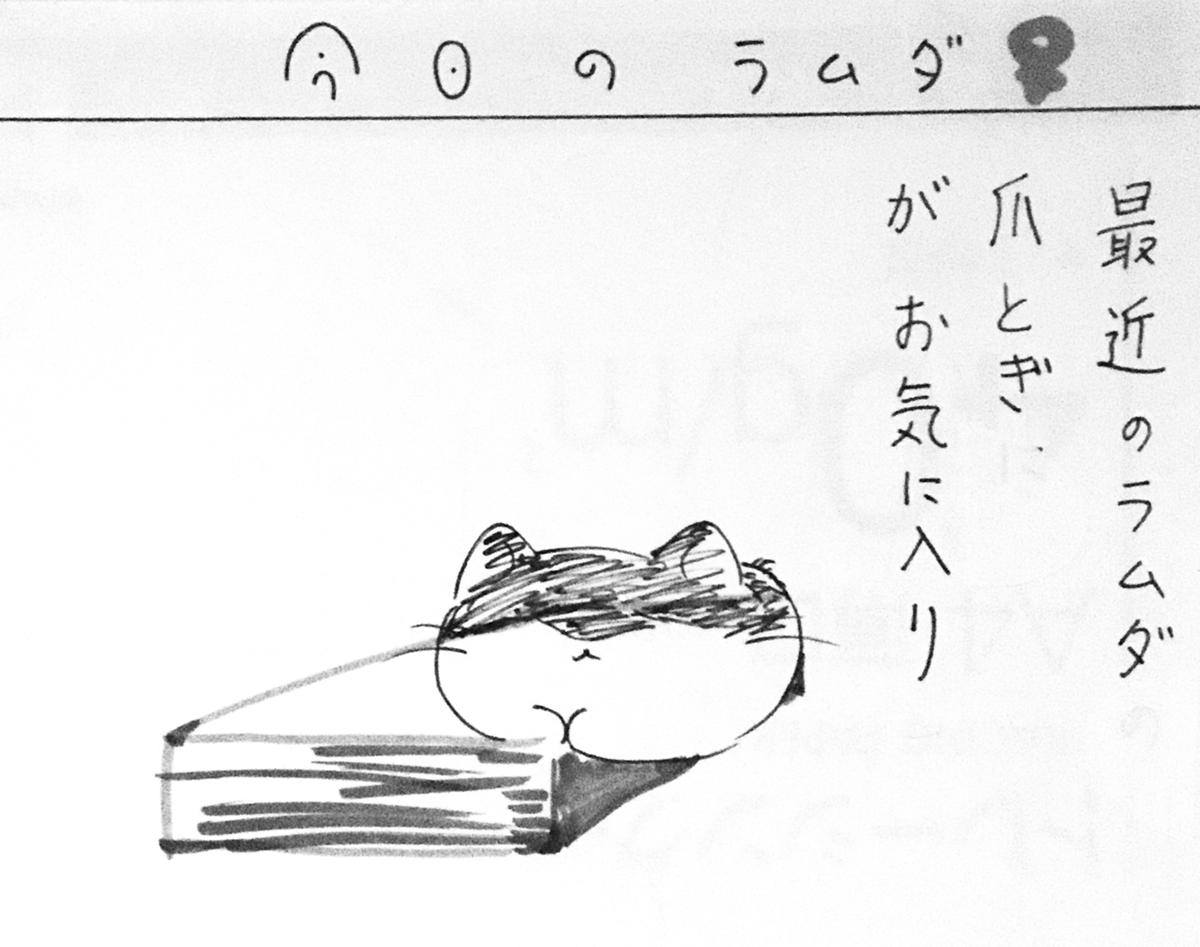 今日のラムダ
最近のラムダ
爪とぎ
がお気に入り